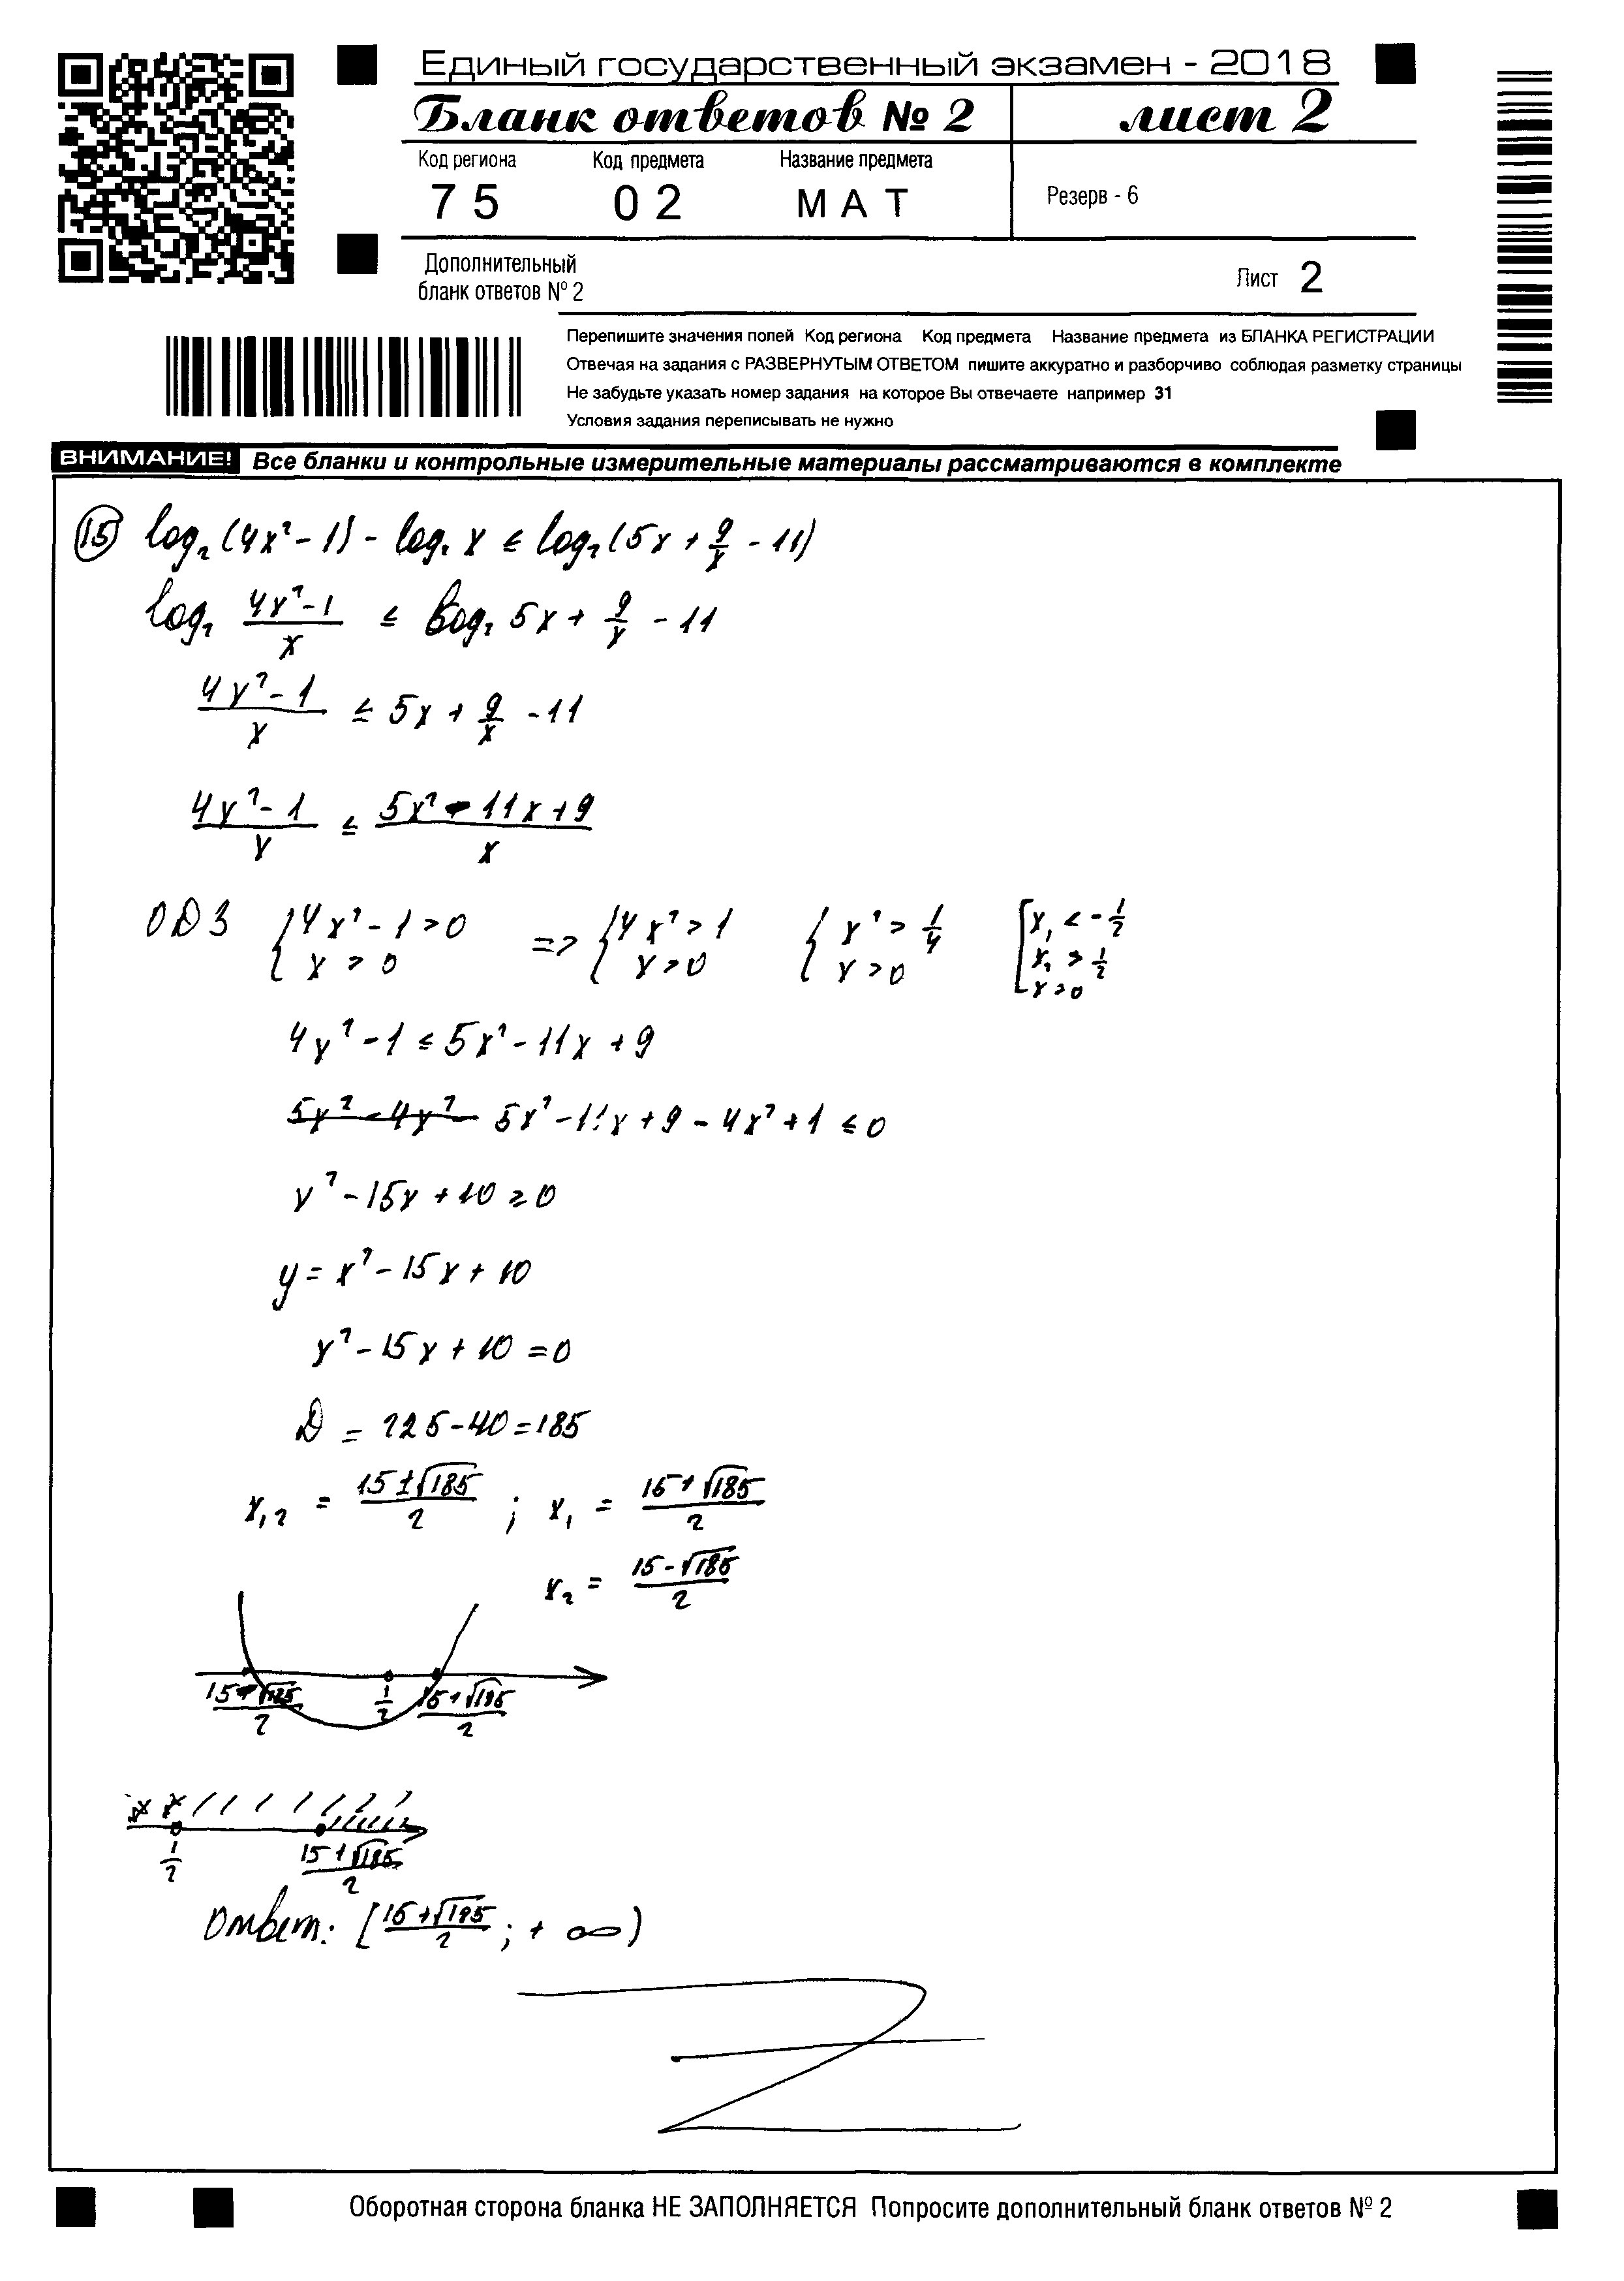 Единый государственный экзамен - 2018
Бланк ответов № 2 лист 2
Код региона Код предмета Название предмета
75 02 МАТ Резерв - 6
Дополнительный
бланк ответов № 2 Лист 2
Перепишите значения полей Код региона Код предмета Название предмета из БЛАНКА РЕГИСТРАЦИИ
Отвечая на задания с РАЗВЕРНУТЫМ ОТВЕТОМ пишите аккуратно и разборчиво соблюдая разметку страницы
Не забудьте указать номер задания на которое Вы отвечаете например 31
Условия задания переписывать не нужно
ВНИМАНИЕ! Все бланки и контрольные измерительные материалы рассматриваются в комплекте
15 log₂(4x²-1) - log₂ x ≤ log₂(5x + 9/x - 11)
log₂ (4x²-1)/x ≤ log₂ 5x + 9/x - 11
(4x²-1)/x ≤ 5x + 9/x - 11
(4x²-1)/x ≤ (5x² - 11x + 9)/x
ОДЗ { 4x² - 1 > 0 ; x > 0 => { 4x² > 1 ; x > 0 { x² > 1/4 ; x > 0 [ x₁ < -1/2 ; x₁ > 1/2 ; x > 0
4x² - 1 ≤ 5x² - 11x + 9
5x² - 4x² - 5x² - 11x + 9 - 4x² + 1 ≤ 0
x² - 15x + 10 ≥ 0
y = x² - 15x + 10
x² - 15x + 10 = 0
D = 225 - 40 = 185
x₁,₂ = (15 ± √185)/2 ; x₁ = (15 + √185)/2
x₂ = (15 - √185)/2
(15 - √185)/2 1/2 (15 + √185)/2
1/2 (15 + √185)/2
Ответ: [(15 + √185)/2 ; + ∞)
Оборотная сторона бланка НЕ ЗАПОЛНЯЕТСЯ Попросите дополнительный бланк ответов № 2